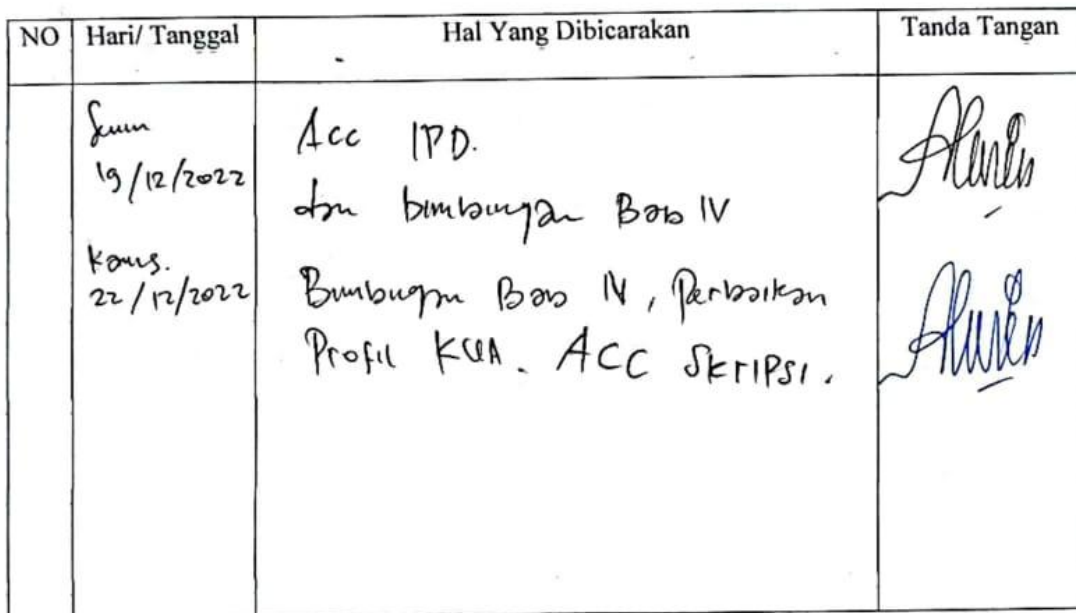 NO Hari/ Tanggal Hal Yang Dibicarakan Tanda Tangan
Senin
19/12/2022
Acc IPD.
dan bimbingan Bab IV
Kamis.
22/12/2022
Bimbingan Bab IV, Perbaikan
Profil KUA. ACC SKRIPSI.